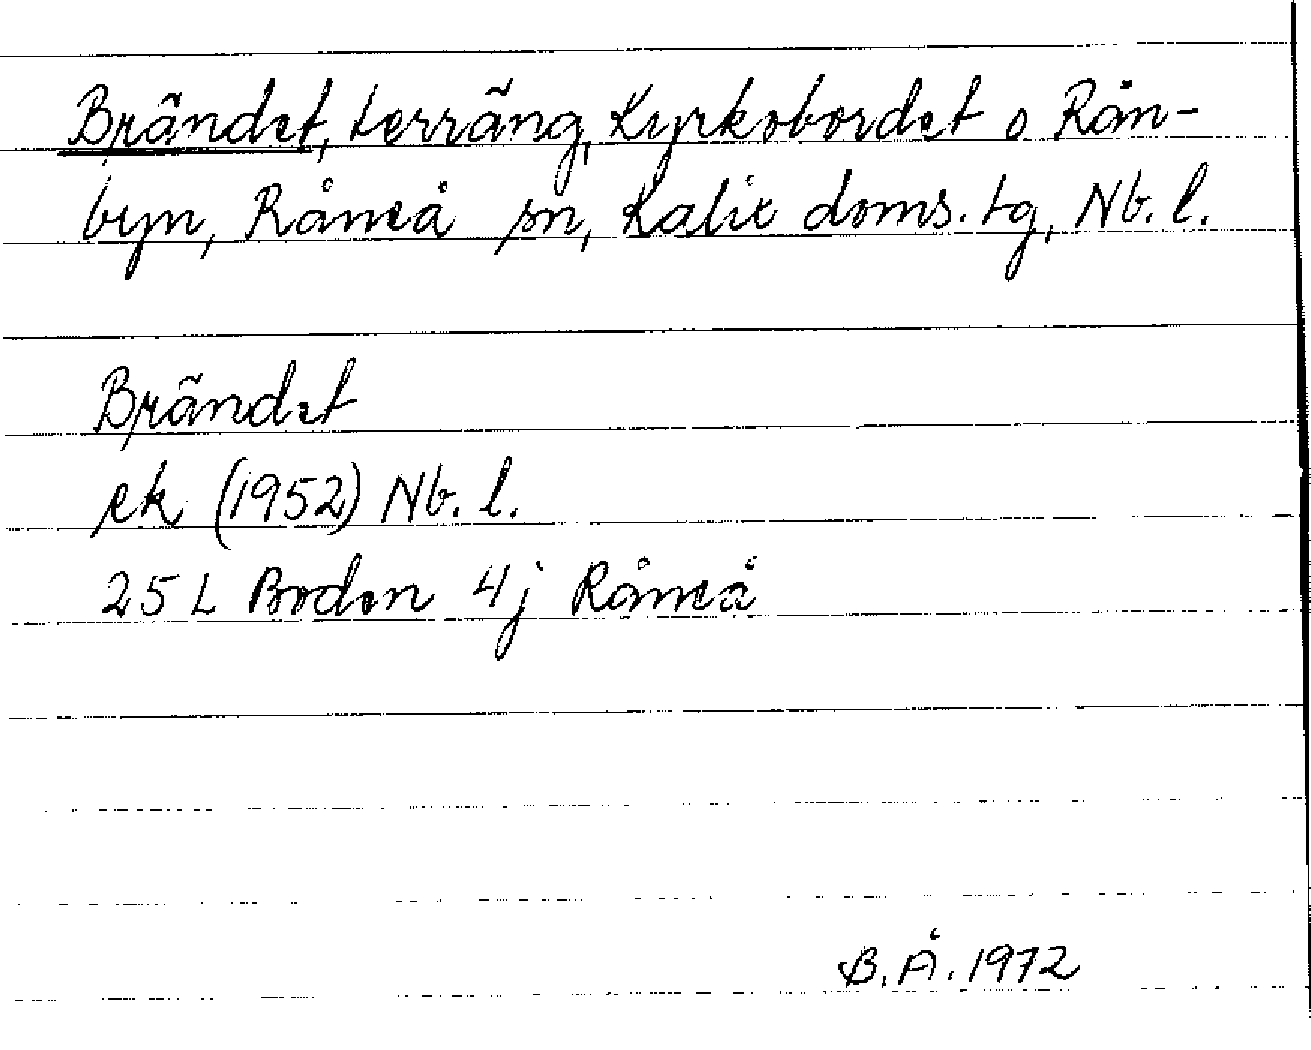 Brändet, terräng, Kyrkobordet o Rån-
byn, Råneå sn, Kalix doms. tg, Nb. l.
Brändet
ek (1952) Nb. l.
25 L Boden 4j Råneå
B. Å. 1972